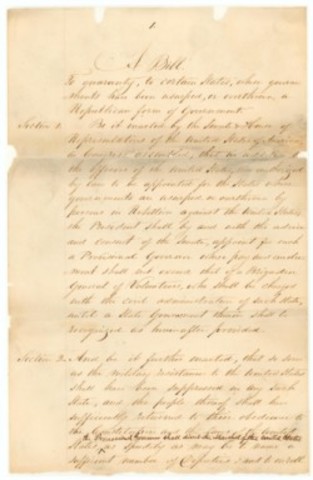 1
A Bill
to guaranty, to certain States, whose govern
ments have been usurped, or overthrown, a
Republican form of Government.
Section 1. Be it enacted by the Senate & House of
Representatives of the United States of America
in Congress assembled, that in
the of the United States authorized
by law to be appointed for the States whose
governments are usurped or overthrown by
persons in Rebellion against the United States
the President shall by and with the advice
and consent of the Senate, appoint for such
a Provisional Governor whose pay and emolu
ment shall not exceed that of a Brigadier
General of Volunteers, who shall be charged
with the civil administration of such State,
until a State Government therein shall be
recognized as hereinafter provided.
Section 2. And be it further enacted, that so soon
as the military resistance to the United States
shall have been suppressed in any such
State, and the people thereof shall have
sufficiently returned to their obedience to
the Constitution and the Laws of the United
the Provisional Governor shall direct the Marshal of the United States
States, as speedily as may be to name a
sufficient number of Deputies, and to enroll